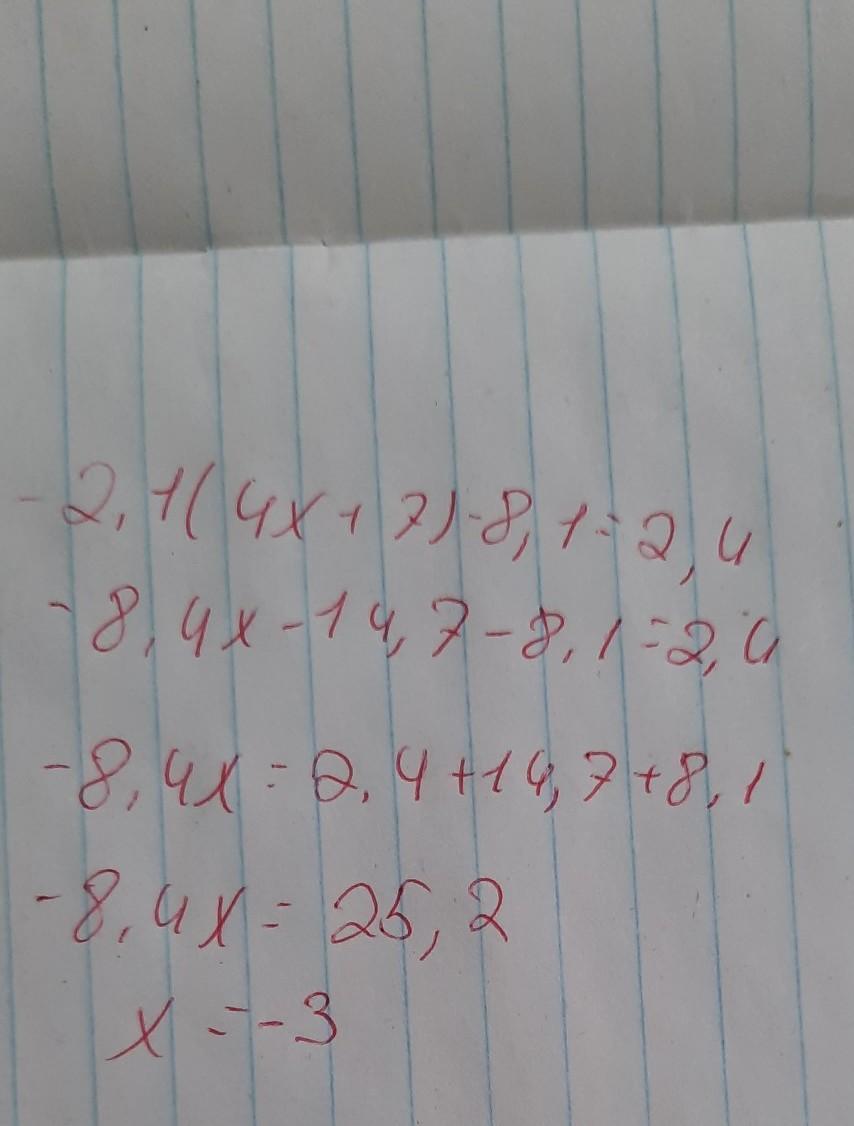 -2,1(4x+7)-8,1=2,4
-8,4x-14,7-8,1=2,4
-8,4x=2,4+14,7+8,1
-8,4x=25,2
x=-3